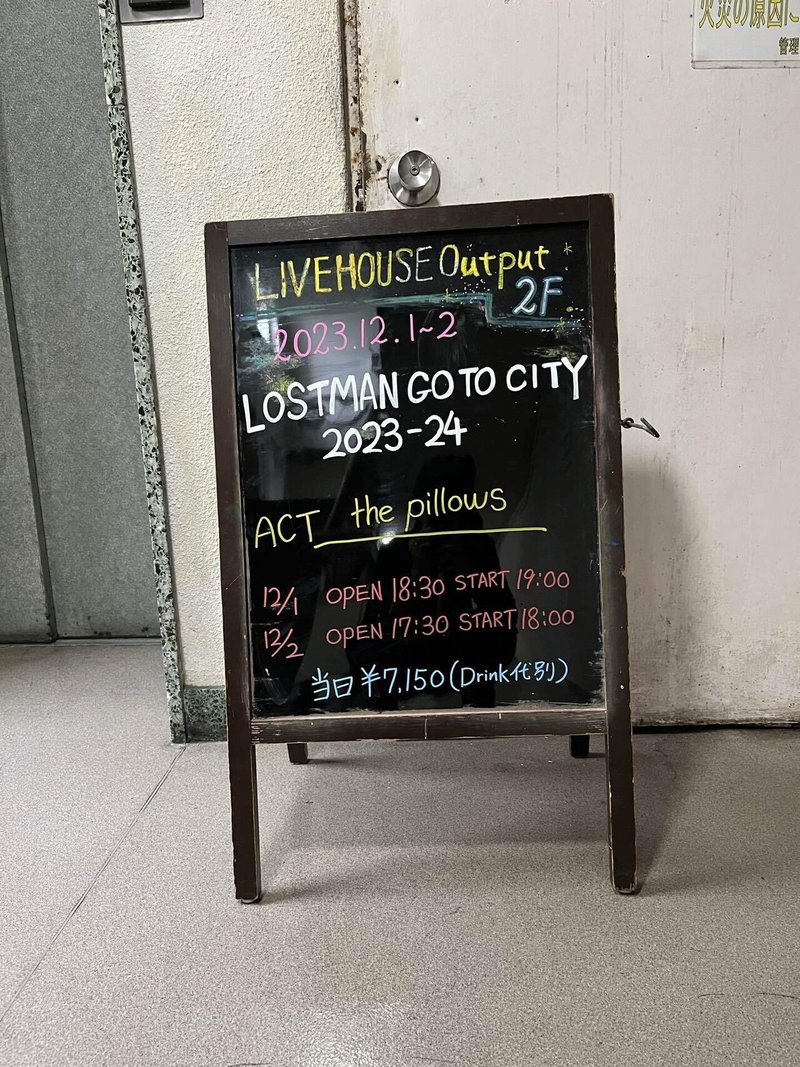 火災の原因に
管理
LIVEHOUSE Output
2F
2023.12.1~2
LOSTMAN GO TO CITY
2023-24
ACT the pillows
12/1 OPEN 18:30 START 19:00
12/2 OPEN 17:30 START 18:00
当日 ¥7,150 (Drink代別)